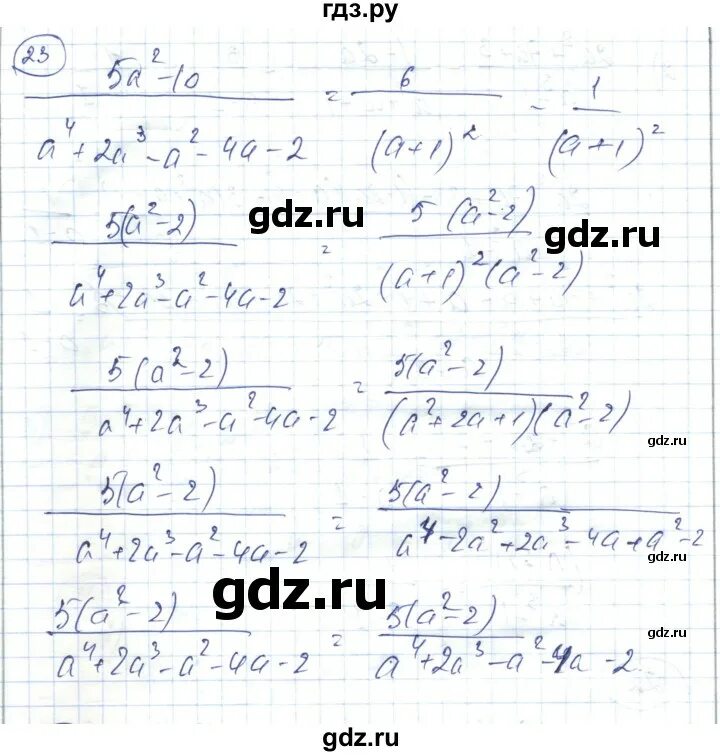 гдз.ру
23
5a²-10 / a⁴+2a³-a²-4a-2 = 6 / (a+1)² - 1 / (a+1)²
5(a²-2) / a⁴+2a³-a²-4a-2 = 5(a²-2) / (a+1)²(a²-2)
gdz.ru gdz.ru
5(a²-2) / a⁴+2a³-a²-4a-2 = 5(a²-2) / (a²+2a+1)(a²-2)
gdz.ru
5(a²-2) / a⁴+2a³-a²-4a-2 = 5(a²-2) / a⁴-2a²+2a³-4a+a²-2
gdz.ru gdz.ru
5(a²-2) / a⁴+2a³-a²-4a-2 = 5(a²-2) / a⁴+2a³-a²-4a-2
gdz.ru